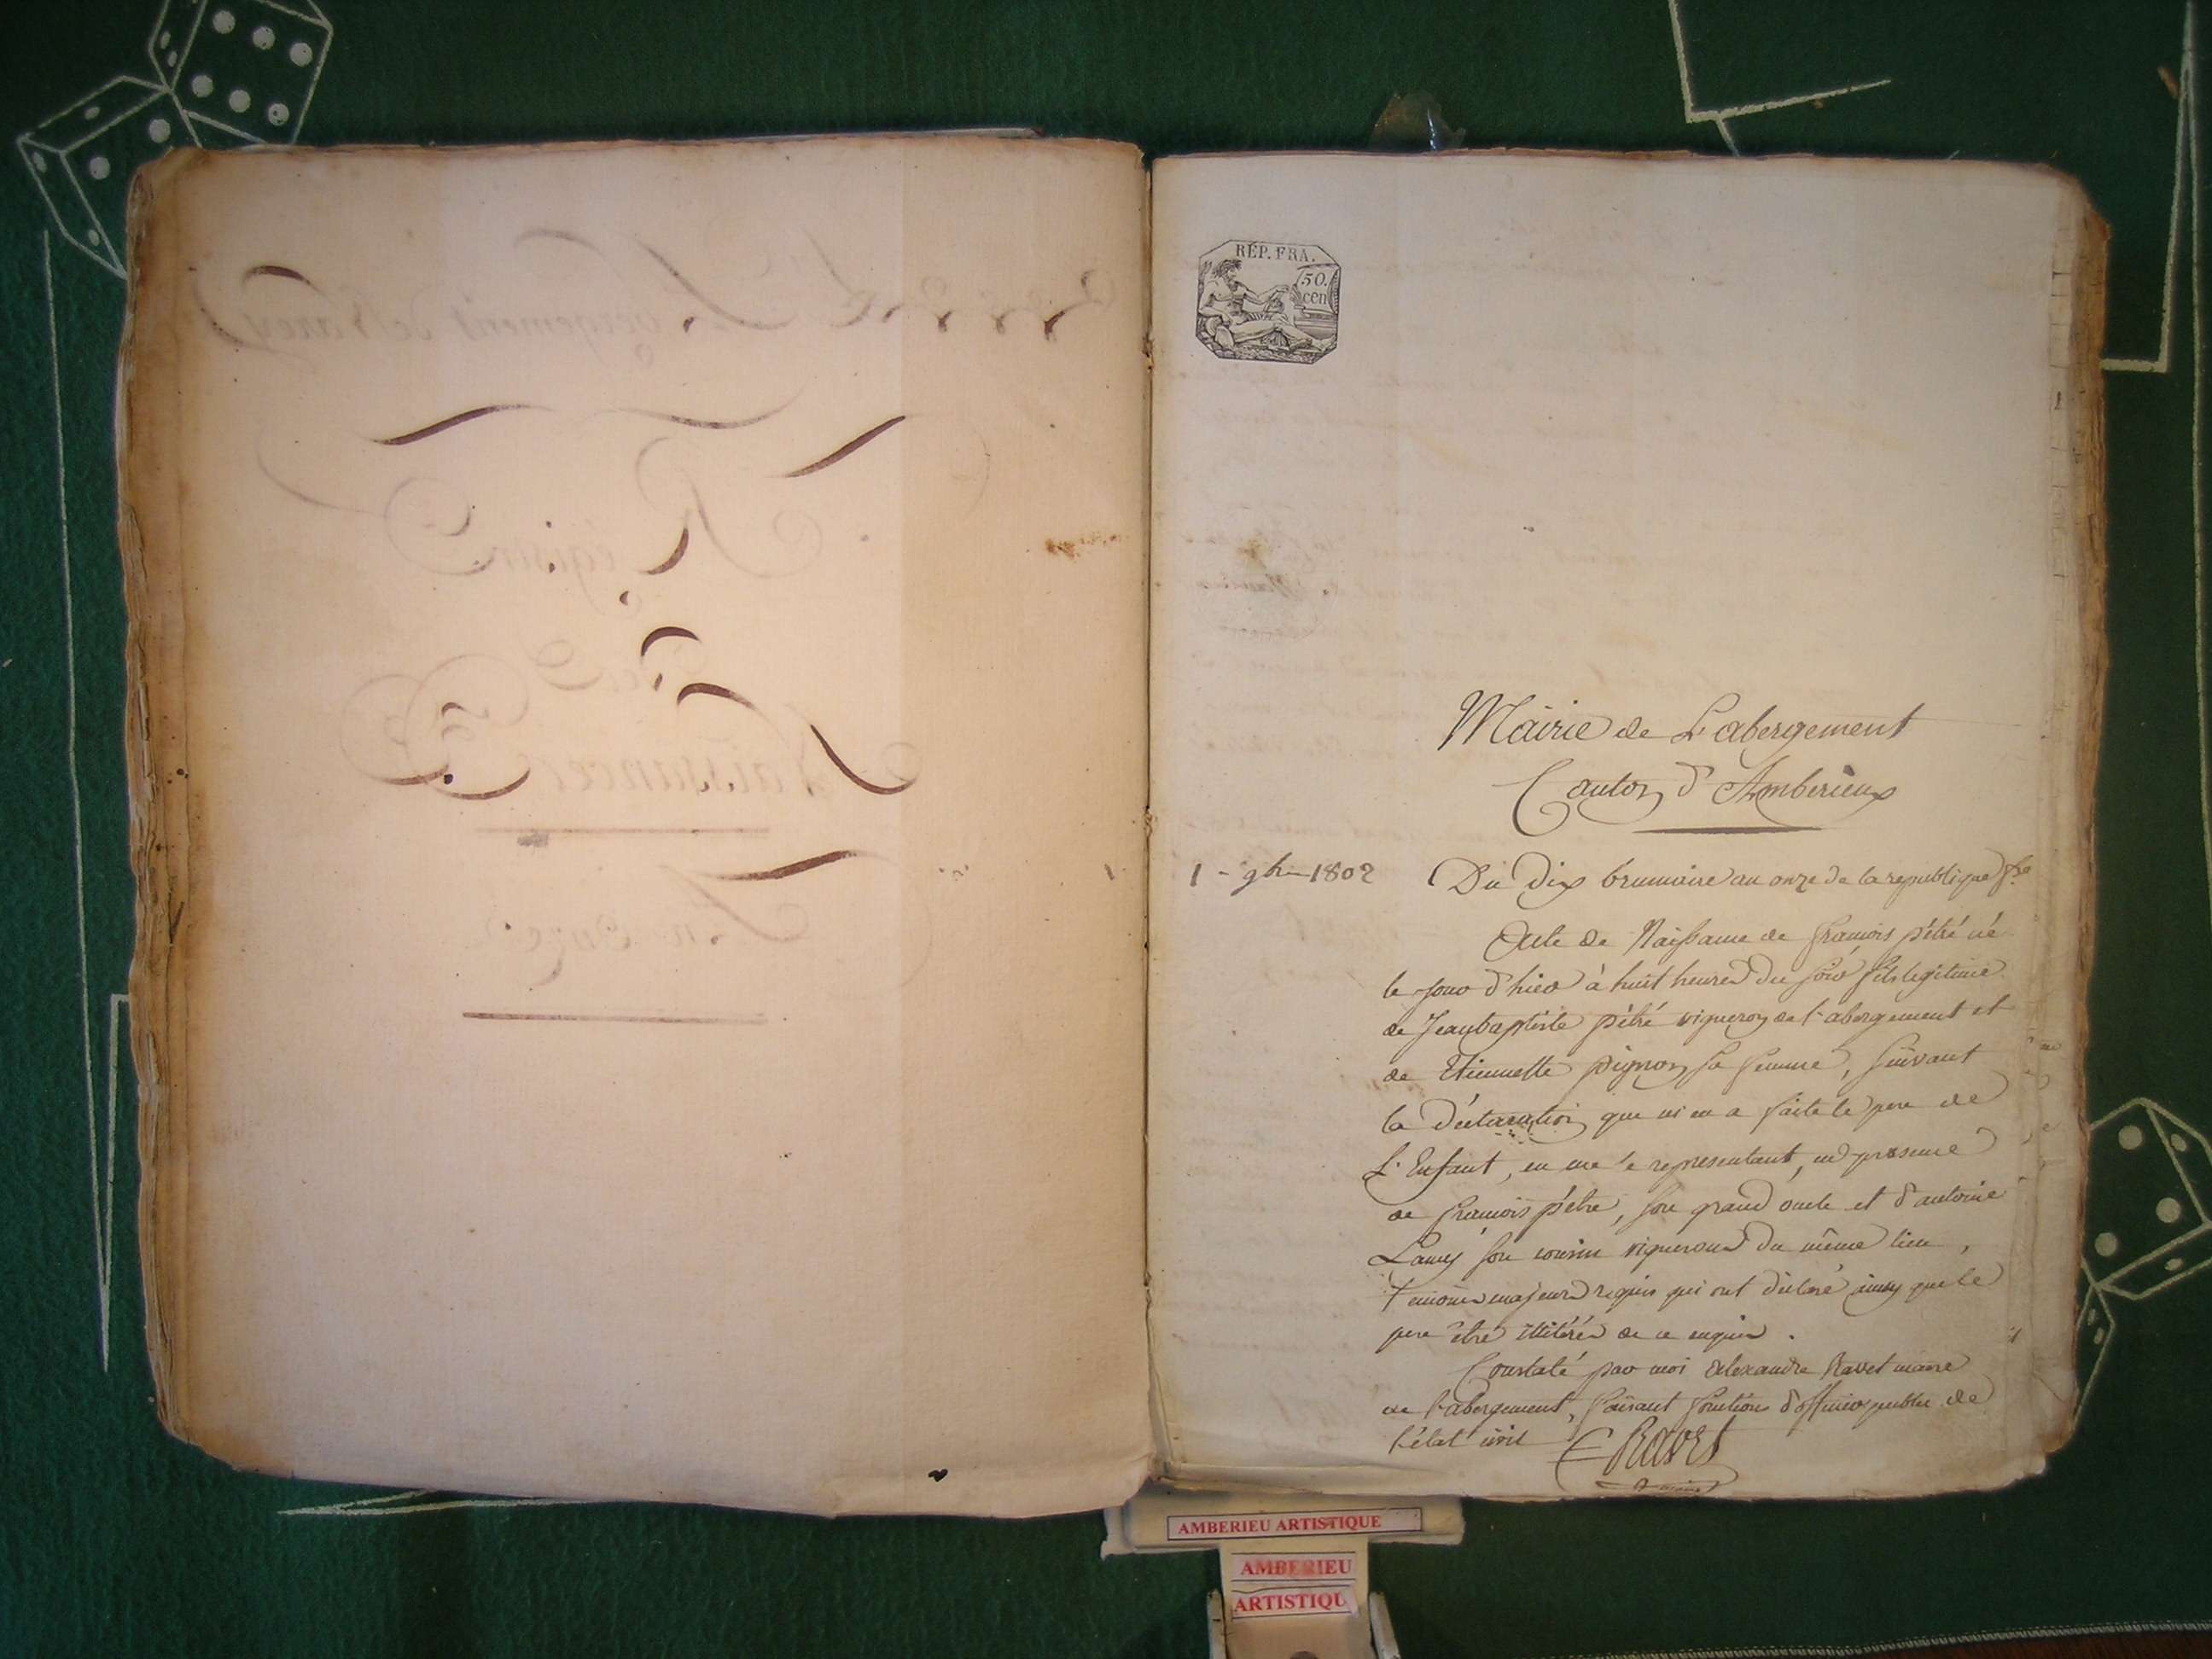 RÉP. FRA.
50.
cen
Mairie de L'abergement
Canton d'Amberieux
1 - 9bre 1802
Du dix brumaire an onze de la republique fse
Acte de Naissance de françois pétré né
le jour d'hier à huit heures du soir fils legitime
de Jeanbaptiste pétré vigneron de l'abergement et
de Etiennette pignon sa femme, suivant
la déclaration que m'en a faite le pere de
L'Enfant, en me le representant, en presence
de françois pétre, son grand oncle et d'antoine
Lamy son cousin vignerons du même lieu,
temoins majeurs requis qui ont déclaré ainsy que le
pere être illitérés de ce enquis.
Constaté par moi alexandre Ravet maire
de l'abergement, faisant fonctions d'officier public de
l'état civil
Ravet
maire
AMBERIEU ARTISTIQUE
AMBERIEU
ARTISTIQU